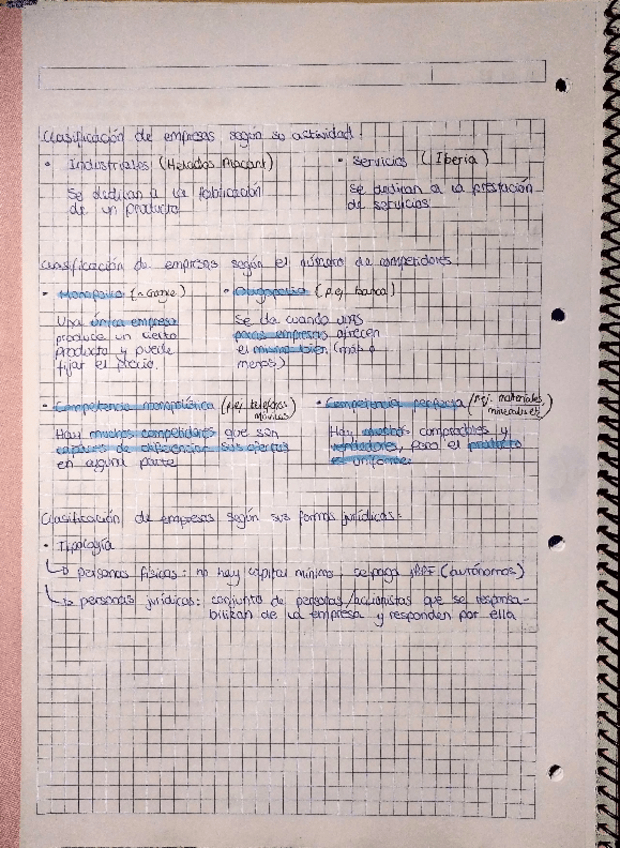 Clasificación de empresas según su actividad:
• Industriales (Helados Alacant)
Se dedican a la fabricación
de un producto
• Servicios (Iberia)
Se dedican a la prestación
de servicios
Clasificación de empresas según el número de competidores
• Monopolio
Una única empresa
produce un cierto
producto y puede
fijar el precio.
• Oligopolio (p.ej. banca)
Se da cuando unas
pocas empresas ofrecen
el mismo bien (más o
menos)
• Competencia monopolística (p.ej. teléfonos
móviles)
Hay muchos competidores que son
capaces de diferenciar sus ofertas
en alguna parte
• Competencia perfecta (p.ej. materiales,
minerales etc)
Hay muchos compradores y
vendedores, pero el producto
es uniforme.
Clasificación de empresas según sus formas jurídicas:
• Tipología
↳ personas físicas: no hay capital mínimo, se paga IRPF (autónomos)
↳ personas jurídicas: conjunto de personas/accionistas que se responsa-
bilizan de la empresa y responden por ella